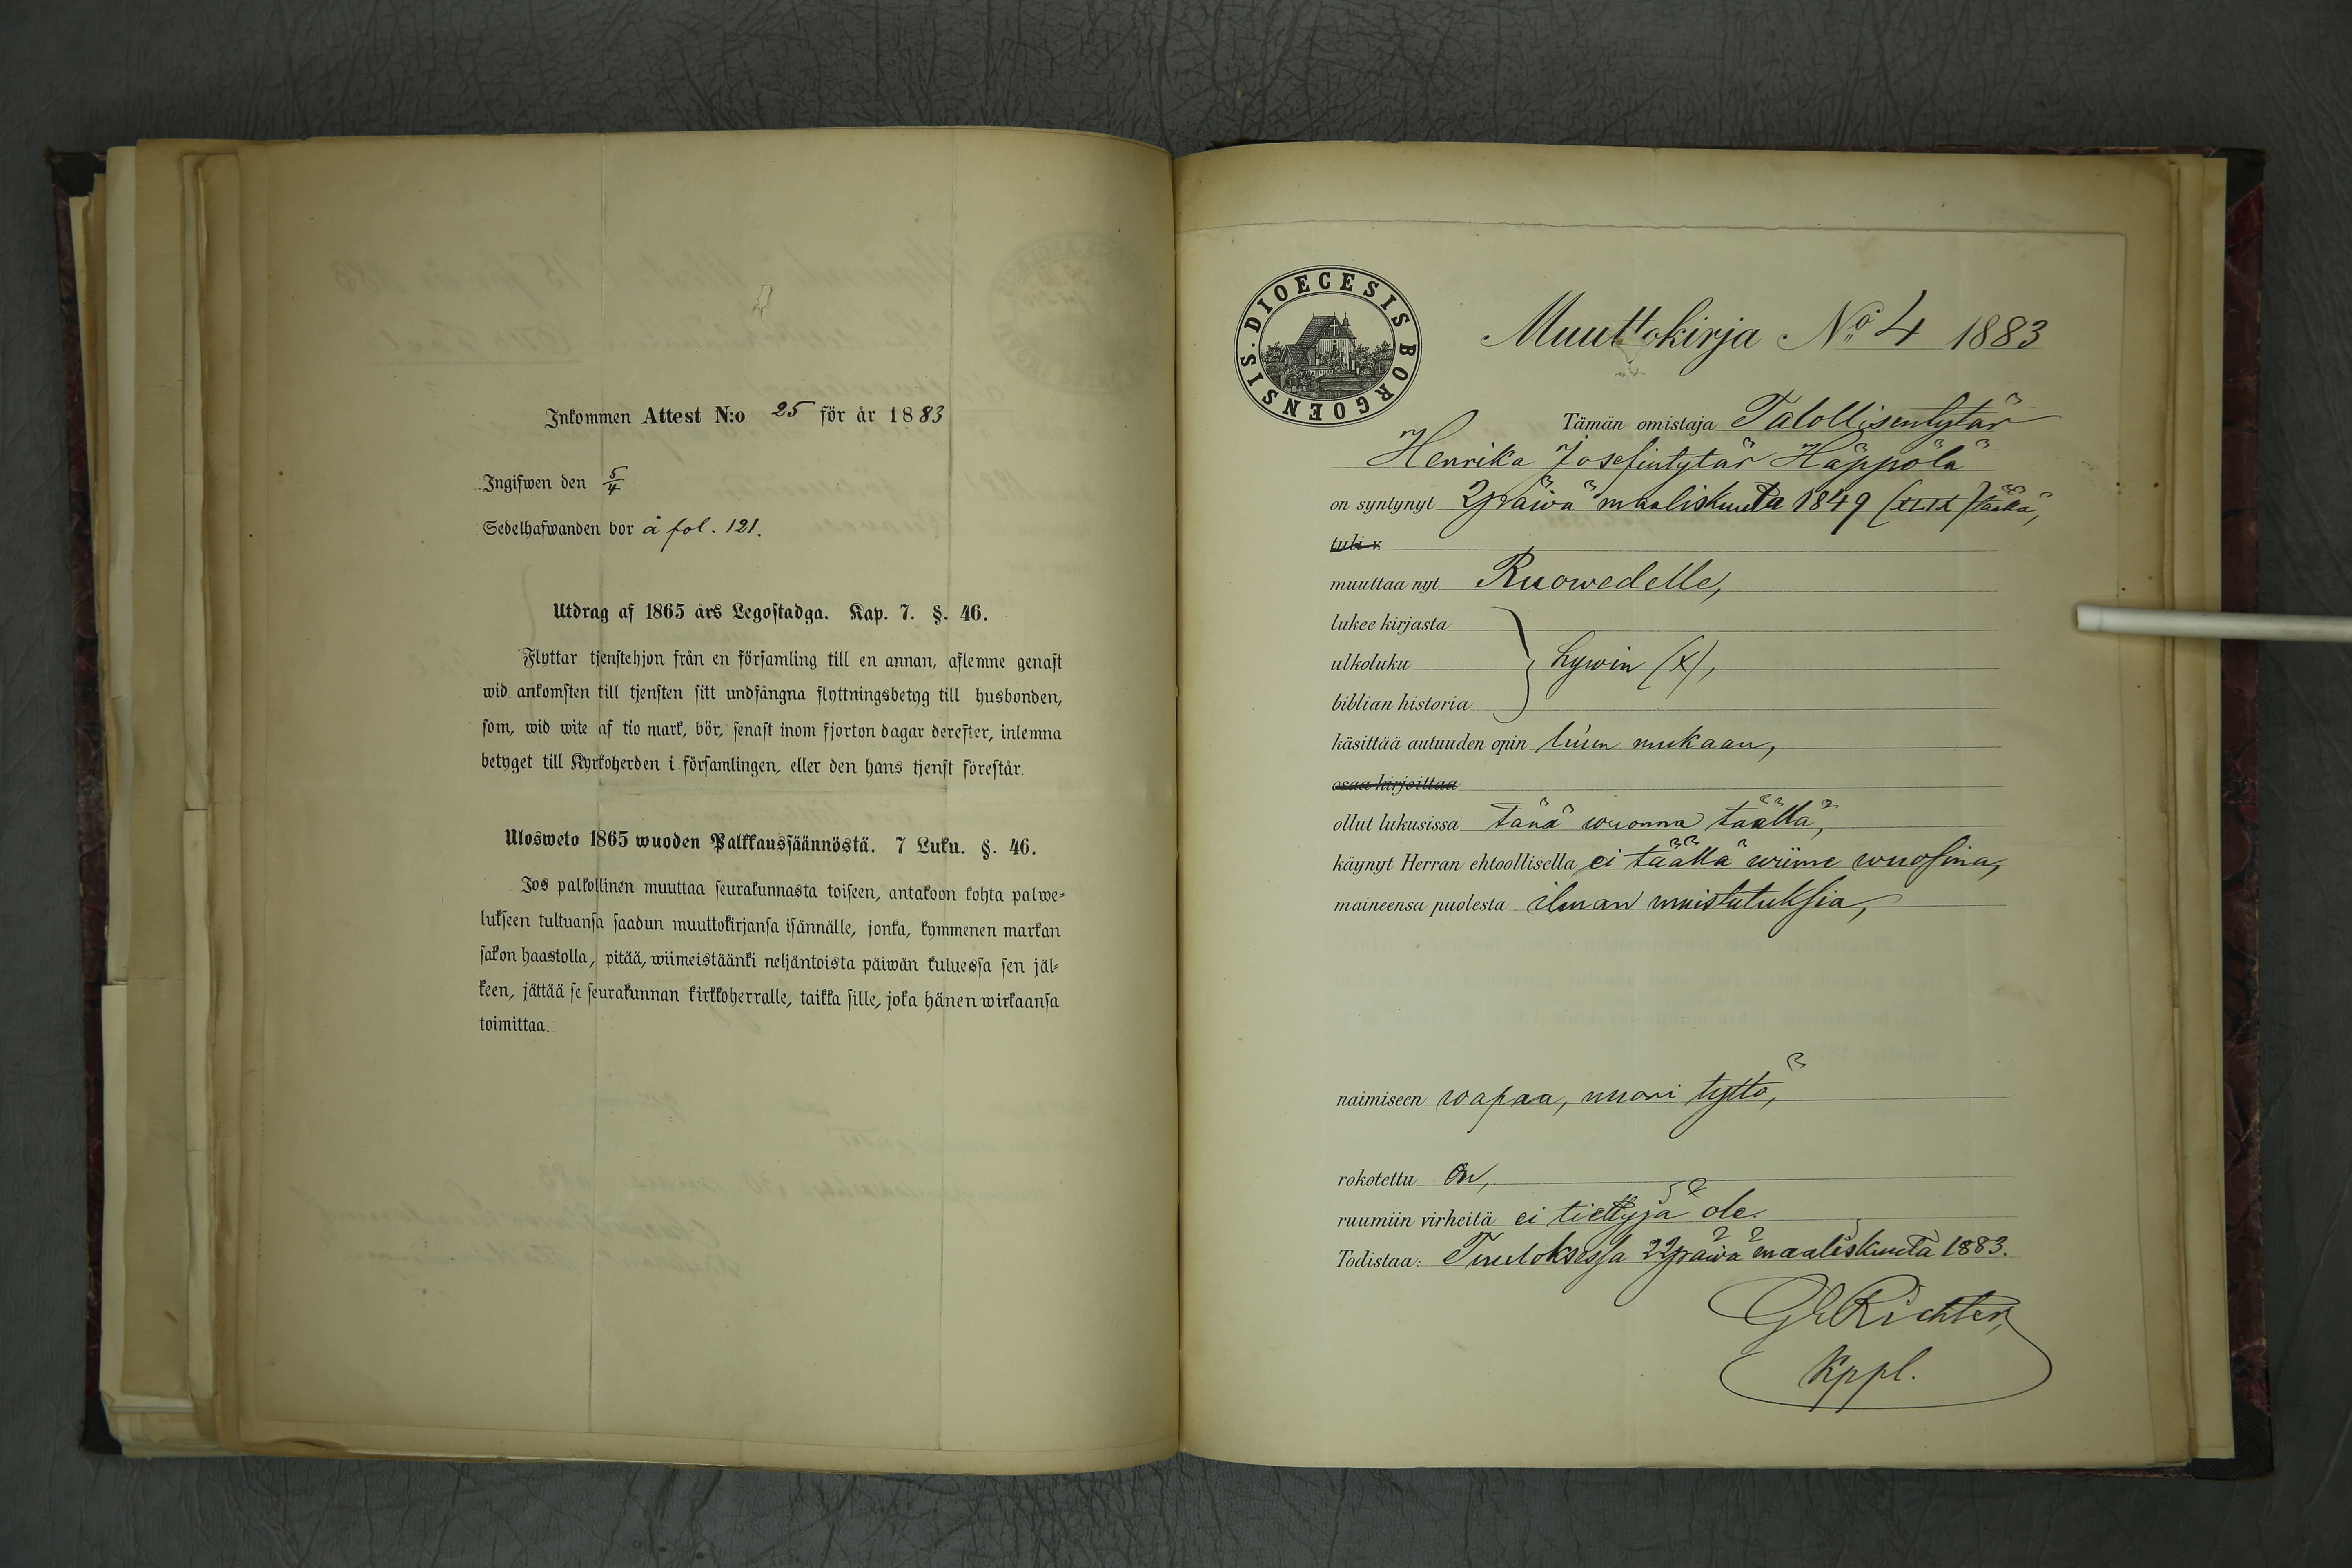 Inkommen Attest N:o 25 för år 1883
Ingifwen den 5/4
Sedelhafwanden bor å fol. 121.
Utdrag af 1865 års Legostadga. Kap. 7. §. 46.
Flyttar tjenstehjon från en församling till en annan, aflemne genast
wid ankomsten till tjensten sitt undfångna flyttningsbetyg till husbonden,
som, wid wite af tio mark, bör, senast inom fjorton dagar derefter, inlemna
betyget till Kyrkoherden i församlingen, eller den hans tjenst förestår.
Ulosweto 1865 wuoden Palkkaussäännöstä. 7 Luku. §. 46.
Jos palkollinen muuttaa seurakunnasta toiseen, antakoon kohta palwe-
lukseen tultuansa saadun muuttokirjansa isännälle, jonka, kymmenen markan
sakon haastolla, pitää, wiimeistäänki neljäntoista päiwän kuluessa sen jäl-
keen, jättää se seurakunnan kirkkoherralle, taikka sille, joka hänen wirkaansa
toimittaa.
DIOECESIS BORGOENSIS.
Muuttokirja No 4 1883
Tämän omistaja Talollisentytär
Henrika Josefintytär Häppölä
on syntynyt 2 päiwä maaliskuuta 1849 (XLIX) täällä,
tuli v.
muuttaa nyt Ruowedelle,
lukee kirjasta
ulkoluku } hywin (x),
biblian historia
käsittää autuuden opin luun mukaan,
osaa kirjoittaa
ollut lukusissa tänä wuonna täällä,
käynyt Herran ehtoollisella ei täällä wiime wuosina,
maineensa puolesta ilman muistutuksia,
naimiseen wapaa, nuori tyttö,
rokotettu on,
ruumiin virheitä ei tiettyjä ole.
Todistaa: Tuuloksessa 22 päiwä maaliskuuta 1883.
Richter,
Kppl.